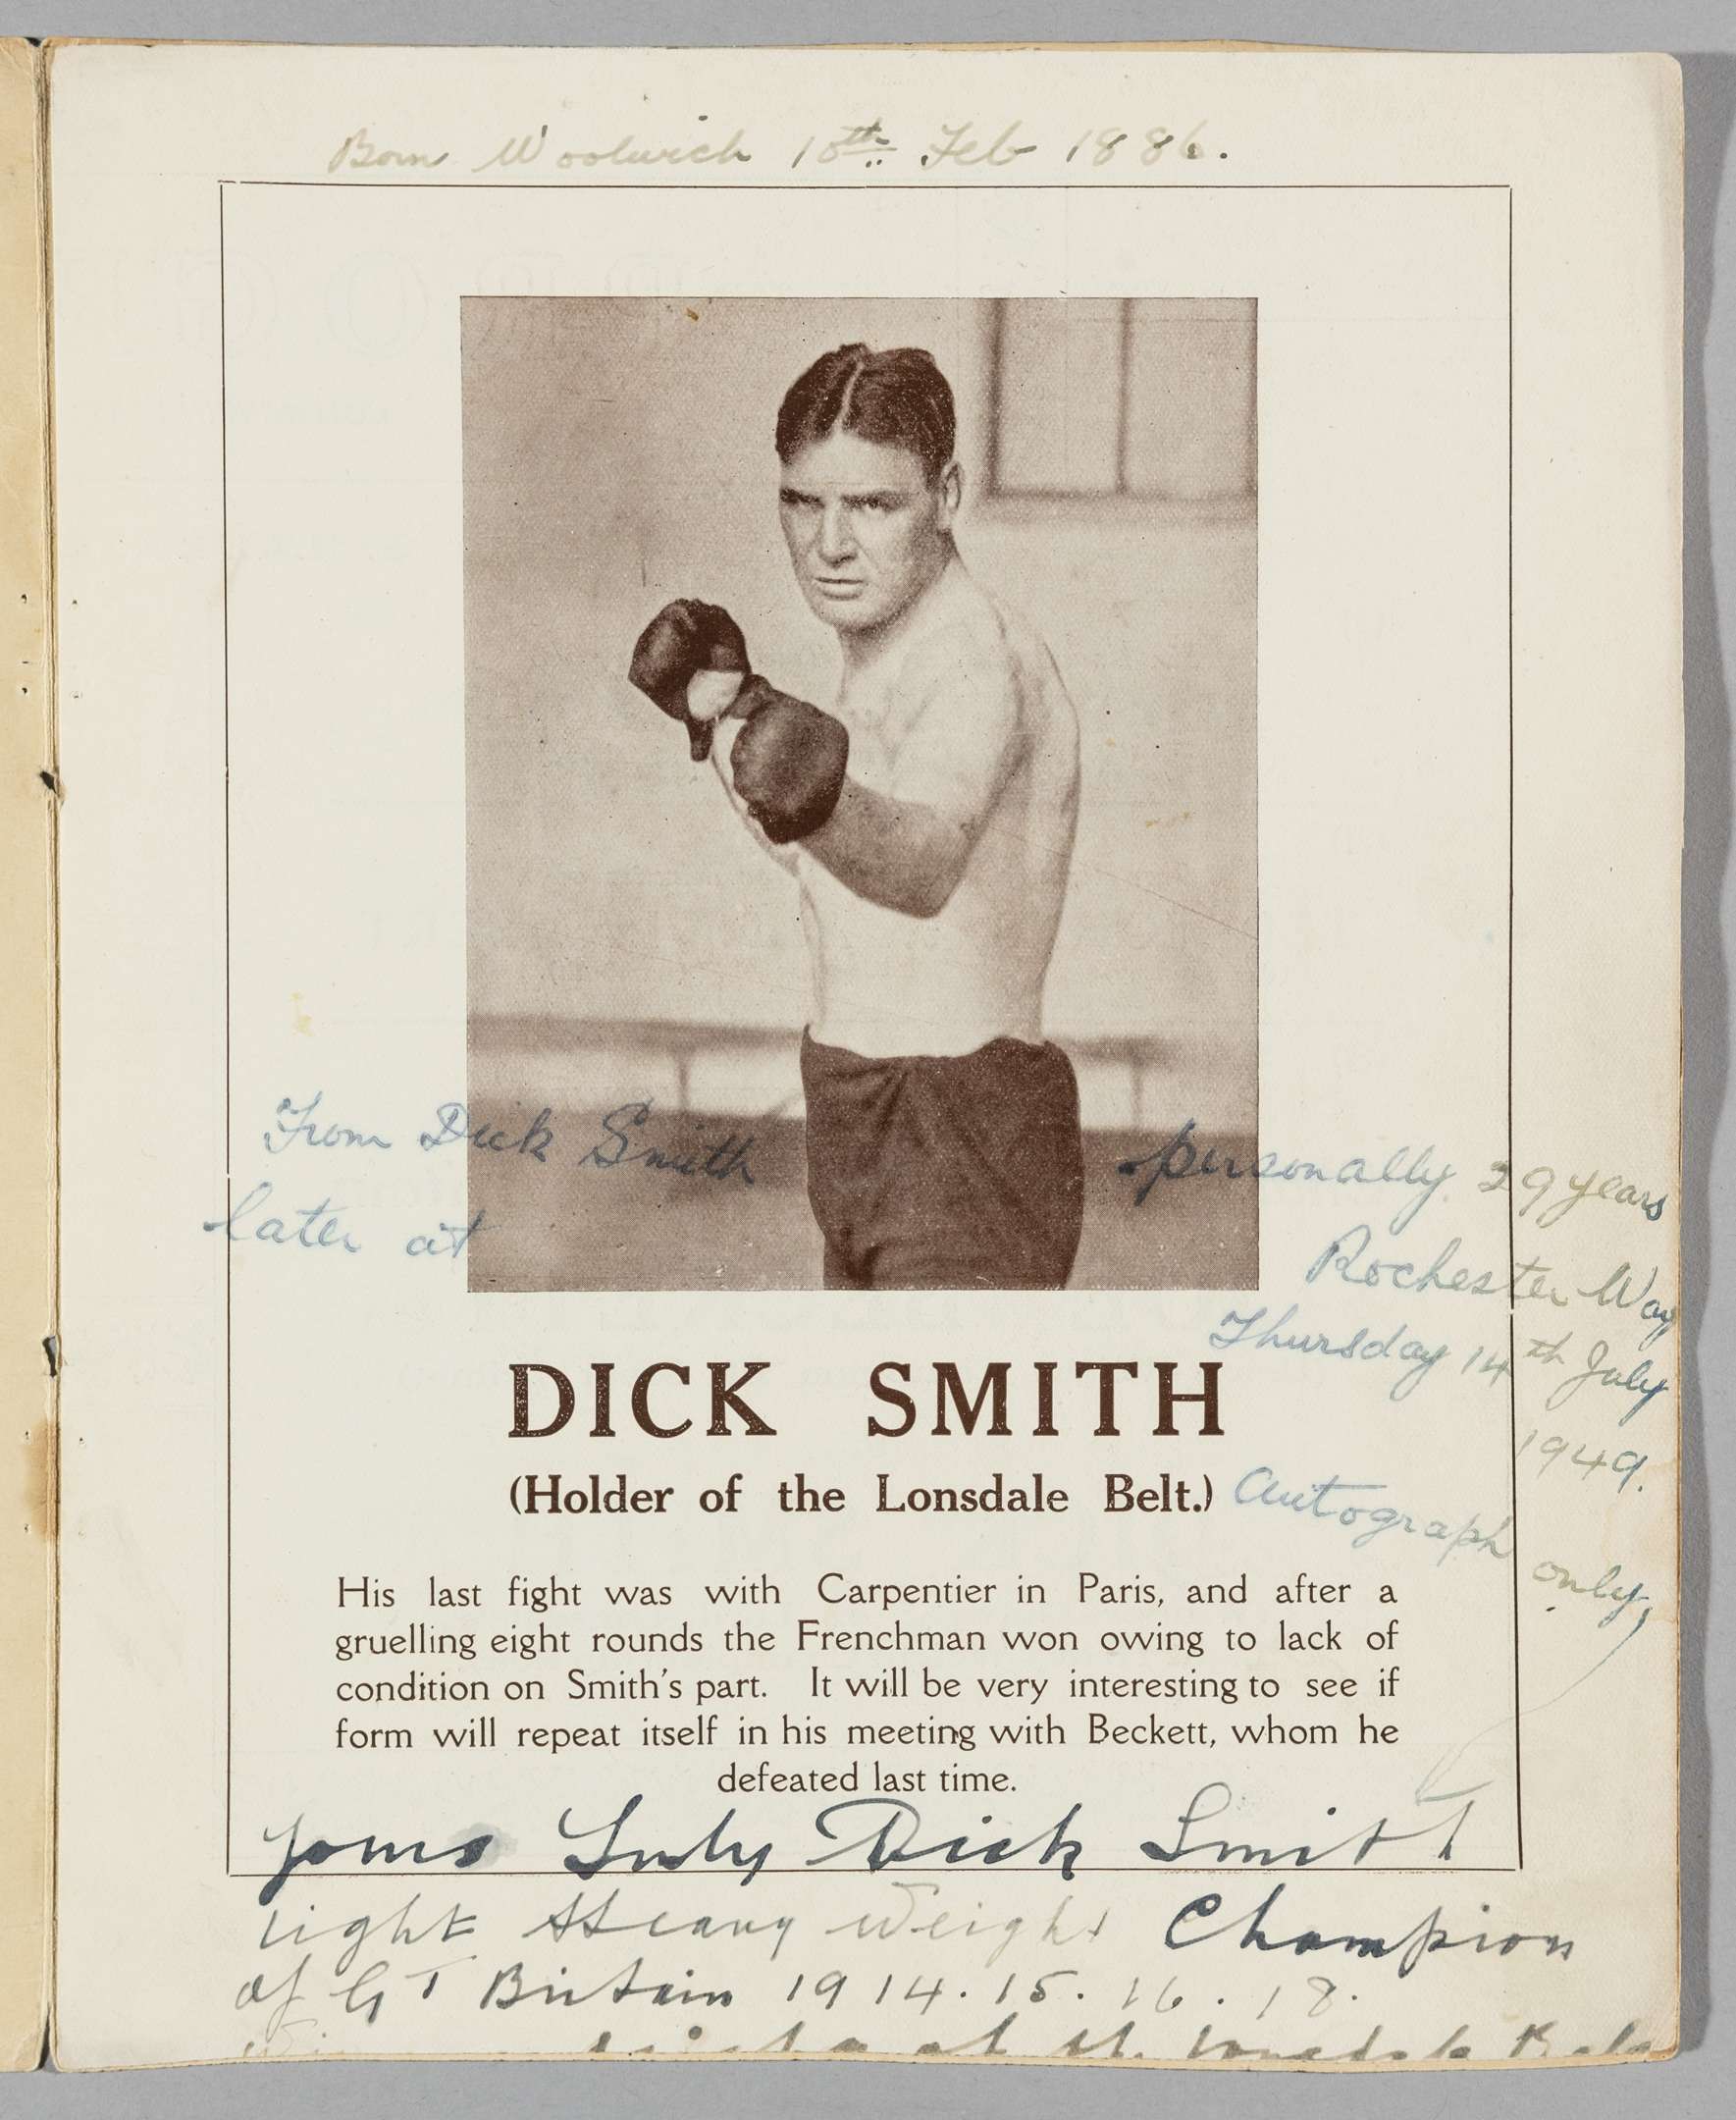 Born Woolwich 10th Feb 1886.
From Dick Smith personally 29 years
later at Rochester Way
Thursday 14th July
1949.
DICK SMITH
(Holder of the Lonsdale Belt.) Autograph only,
His last fight was with Carpentier in Paris, and after a
gruelling eight rounds the Frenchman won owing to lack of
condition on Smith's part. It will be very interesting to see if
form will repeat itself in his meeting with Beckett, whom he
defeated last time.
Yours Truly Dick Smith
Light Heavy Weight Champion
of GT Britain 1914. 15. 16. 18.
of the Lonsdale Belt